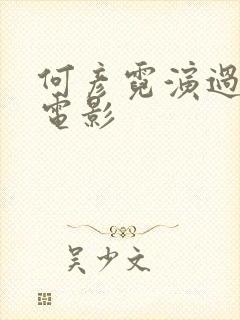 何彥霓演過
電影
吳少文